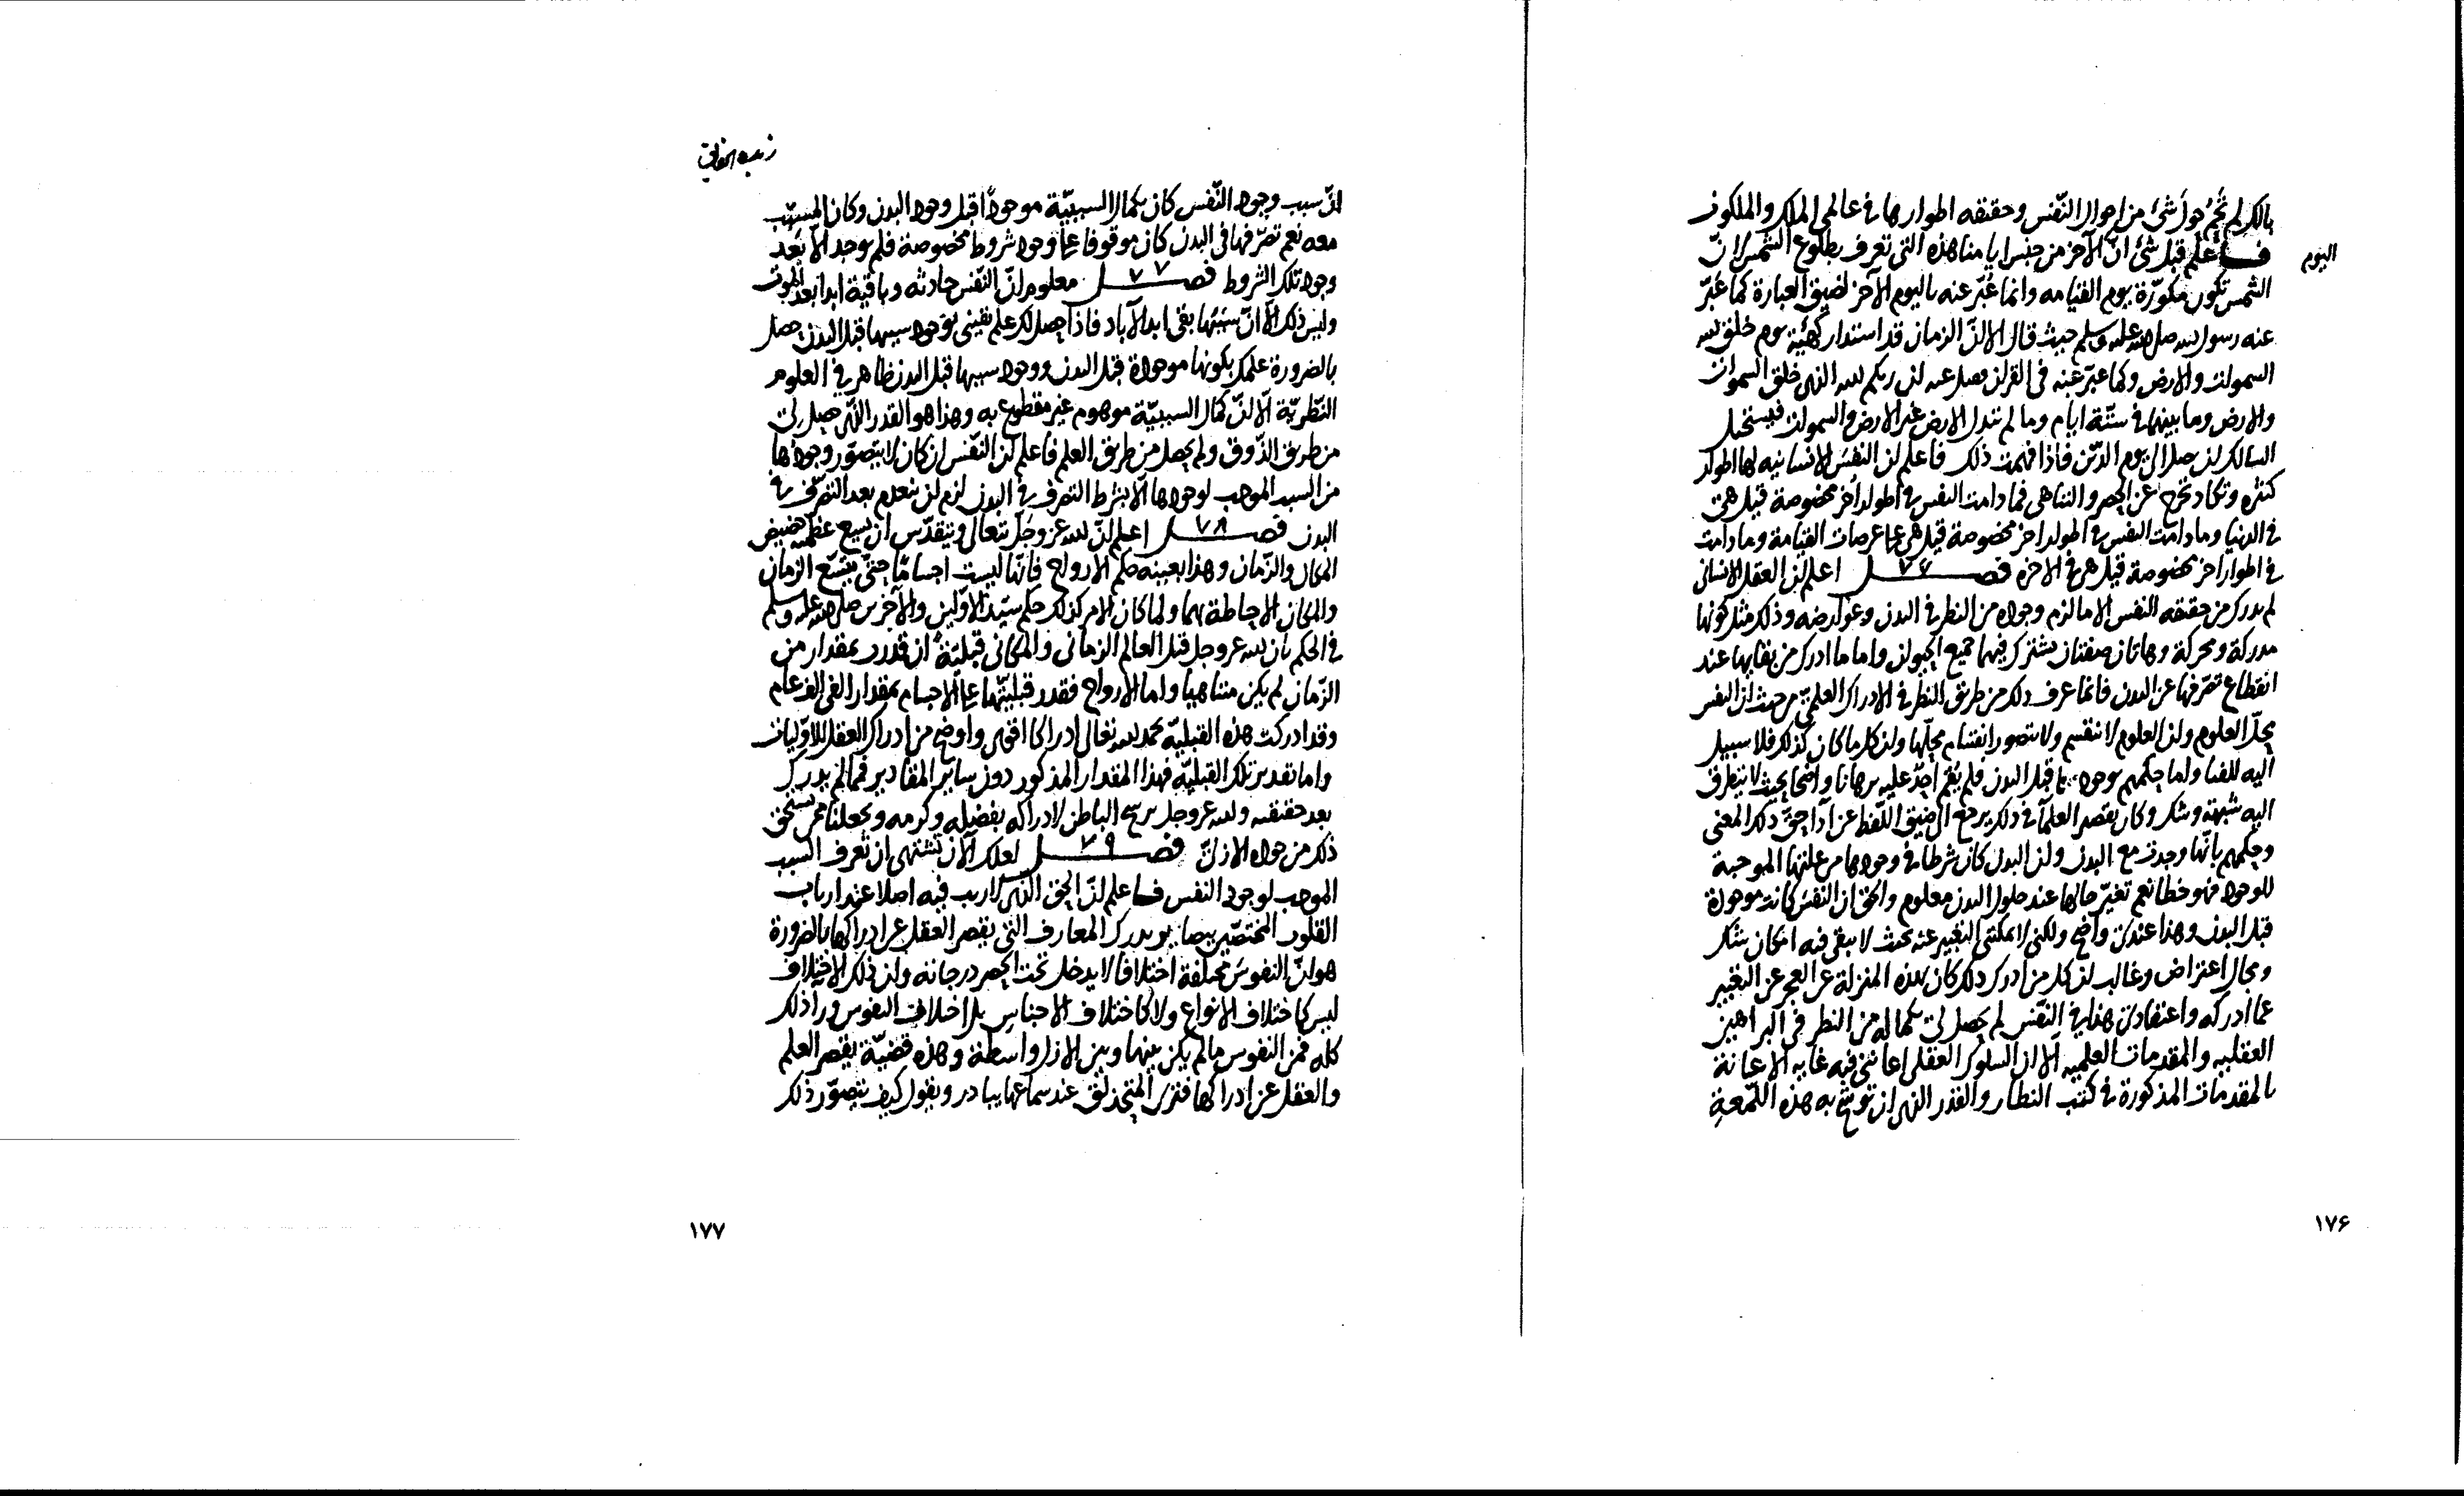 بالك لم تحم حول شئ من احوال النّفس وحقيقه اطوارها فى عالمى الملك والملكوت
فاعلم قبل شئ انّ الآخر من جنس ايامنا هذه التى تعرف بطلوع الشمس لانّ
اليوم
الشمس تكون مكوّرة يوم القيامه وانما عبّر عنه باليوم الآخر لضيق العبارة كما عبّر
عنه رسول الله صلى الله عليه وسلم حيث قال الا انّ الزمان قد استدار كهيئة يوم خلق الله
السموات والارض وكما عبّر عنه فى القران ان ربكم الله الذى خلق السموات
والارض وما بينهما فى ستّة ايام وما لم تبدل الارض غير الارض والسموات فيستحيل
السالك ان يصل الى يوم الدّين فاذا فهمت ذلك فاعلم ان النفس الانسانيه لها اطوار
كثيره وتكاد تخرج عن الحصر والتناهى فما دامت النفس فى اطوار اُخر مخصوصة قيل هى
فى الدنيا وما دامت النفس فى اطوار اخر مخصوصة قيل هى على عرصات القيامة وما دامت
فى اطوار اخر مخصوصة قيل هى فى الاخره فصل ٧٦ اعلم ان العقل الانسانى
لم يدرك من حقيقه النفس الا ما لزم وجوده من النظر فى البدن وعوارضه وذلك مثل كونها
مدركة ومحركة وهاتان صفتان يشترك فيهما جميع الحيوان واما ما ادرك من بقايها عند
انقطاع تصرّفها عن البدن فانما عرف ذلك من طريق النظر فى الادراك العلمىّ من حيث ان النفس
محلّ العلوم وان العلوم لا تنقسم ولا يتصور انقسام محلّها وان كل ما كان كذلك فلا سبيل
اليه للفنا واما حكمهم بوجودها قبل البدن فلم يُقم احدٌ عليه برهانا واضحا بحيث لا يتطرق
اليه شبهة وشك وكان تقصير العلمآ فى ذلك يرجع الى ضيق اللّفظ عن آدا حقّ ذلك المعنى
وحكمهم بانّها وجدت مع البدن وان البدن كان شرطا فى وجودها من علتها الموجبة
للوجود فهو خطا نعم تغيّر حالها عند حلول البدن معلوم والحق ان النفس كانت موجودة
قبل البدن وهذا عندى واضح ولكنى لا يمكننى التعبير عنه بحيث لا يبقى فيه امكان شك
ومجال اعتراض وغالب ان كل من ادرك ذلك كان بهذه المنزلة عن العجز عن التعبير
عما ادركه واعتقادى هذا فى النّفس لم يحصل لى بكماله من النظر فى البراهين
العقليه والمقدمات العلميه الا ان السلوك العقلى اعاننى فيه غايه الاعانة
بالمقدمات المذكورة فى كتب النظار والقدر الذى ان توضح به هذه اللّمعة
١٧۶
زبدة الحقايق
انّ سبب وجود النّفس كان بكمال السببيّة موجوداً قبل وجود البدن وكان المسبّب
معه نعم تصرّفها فى البدن كان موقوفا على وجود شروط مخصوصة فلم يوجد الّا بعد
وجود تلك الشروط فصل ٧٧ معلوم انّ النّفس حادثه وباقية ابدا بعد الموت
وليس ذلك الّا انّ سببها يبقى ابد الآباد فاذا حصل لك علم يقينى بوجود سببها قبل البدن حصل
بالضرورة علمك بكونها موجودة قبل البدن ووجود سببها قبل البدن ظاهر فى العلوم
النّظريّة الّا انّ كمال السببيّة موهوم غير مقطوع به وهذا هو القدر الذى حصل لى
من طريق الذّوق ولم يحصل من طريق العلم فاعلم انّ النّفس ان كان لا يتصوّر وجودها
من السبب الموجب لوجودها الّا بشرط التصرف فى البدن لزم ان ينعدم بعد التصرّف فى
البدن فصل ٧٨ اعلم انّ الله عزّ وجلّ يتعالى ويتقدّس ان يسع عظمته حضيض
المكان والزّمان وهذا بعينه حكم الارواح فانّها ليست اجسامًا حتّى يتسع الزمان
والمكان الاحاطة بها ولما كان الامر كذلك حكم سيّد الاوّلين والآخرين صلى الله عليه وسلم
فى الحكم بان الله عز وجل قبل العالم الزمانى والمكانى قبليّةً ان قُدرت بمقدار من
الزّمان لم يكن متناهيا واما الارواح فقدر قبليّتها على الاجسام بمقدار الفى الف عام
وقد ادركت هذه القبليّة بحمد الله تعالى ادراكا اقوى واوضح من ادراك العقل للاوّليات
واما تقدير تلك القبليّة فهذا المقدار المذكور دون ساير المقادير فما لم يدرك
بعد حقيقته والله عز وجل يرشح الباطن لادراكه بفضله وكرمه ويجعلنا ممن يستحق
ذلك من جوده الازلىّ فصل ٧٩ لعلك الآن تشتهى ان تعرف السبب
الموجب لوجود النفس فاعلم انّ الحق الذى لا ريب فيه اصلا عند ارباب
القلوب المختصّين ببصاير يدرك المعارف التى يقصر العقل عن ادراكها بالضرورة
هو انّ النفوس مختلفة اختلافا لا يدخل تحت الحصر درجاته وان ذلك الاختلاف
ليس كاختلاف الانواع ولا كاختلاف الاجناس بل اختلاف النفوس ورآ ذلك
كله فمن النفوس ما لم يكن بينها وبين الازل واسطة وهذه قضيّة يقصر العلم
والعقل عن ادراكها فترى المتحذلق عند سماعها يبادر ويقول كيف يتصوّر ذلك
١٧٧